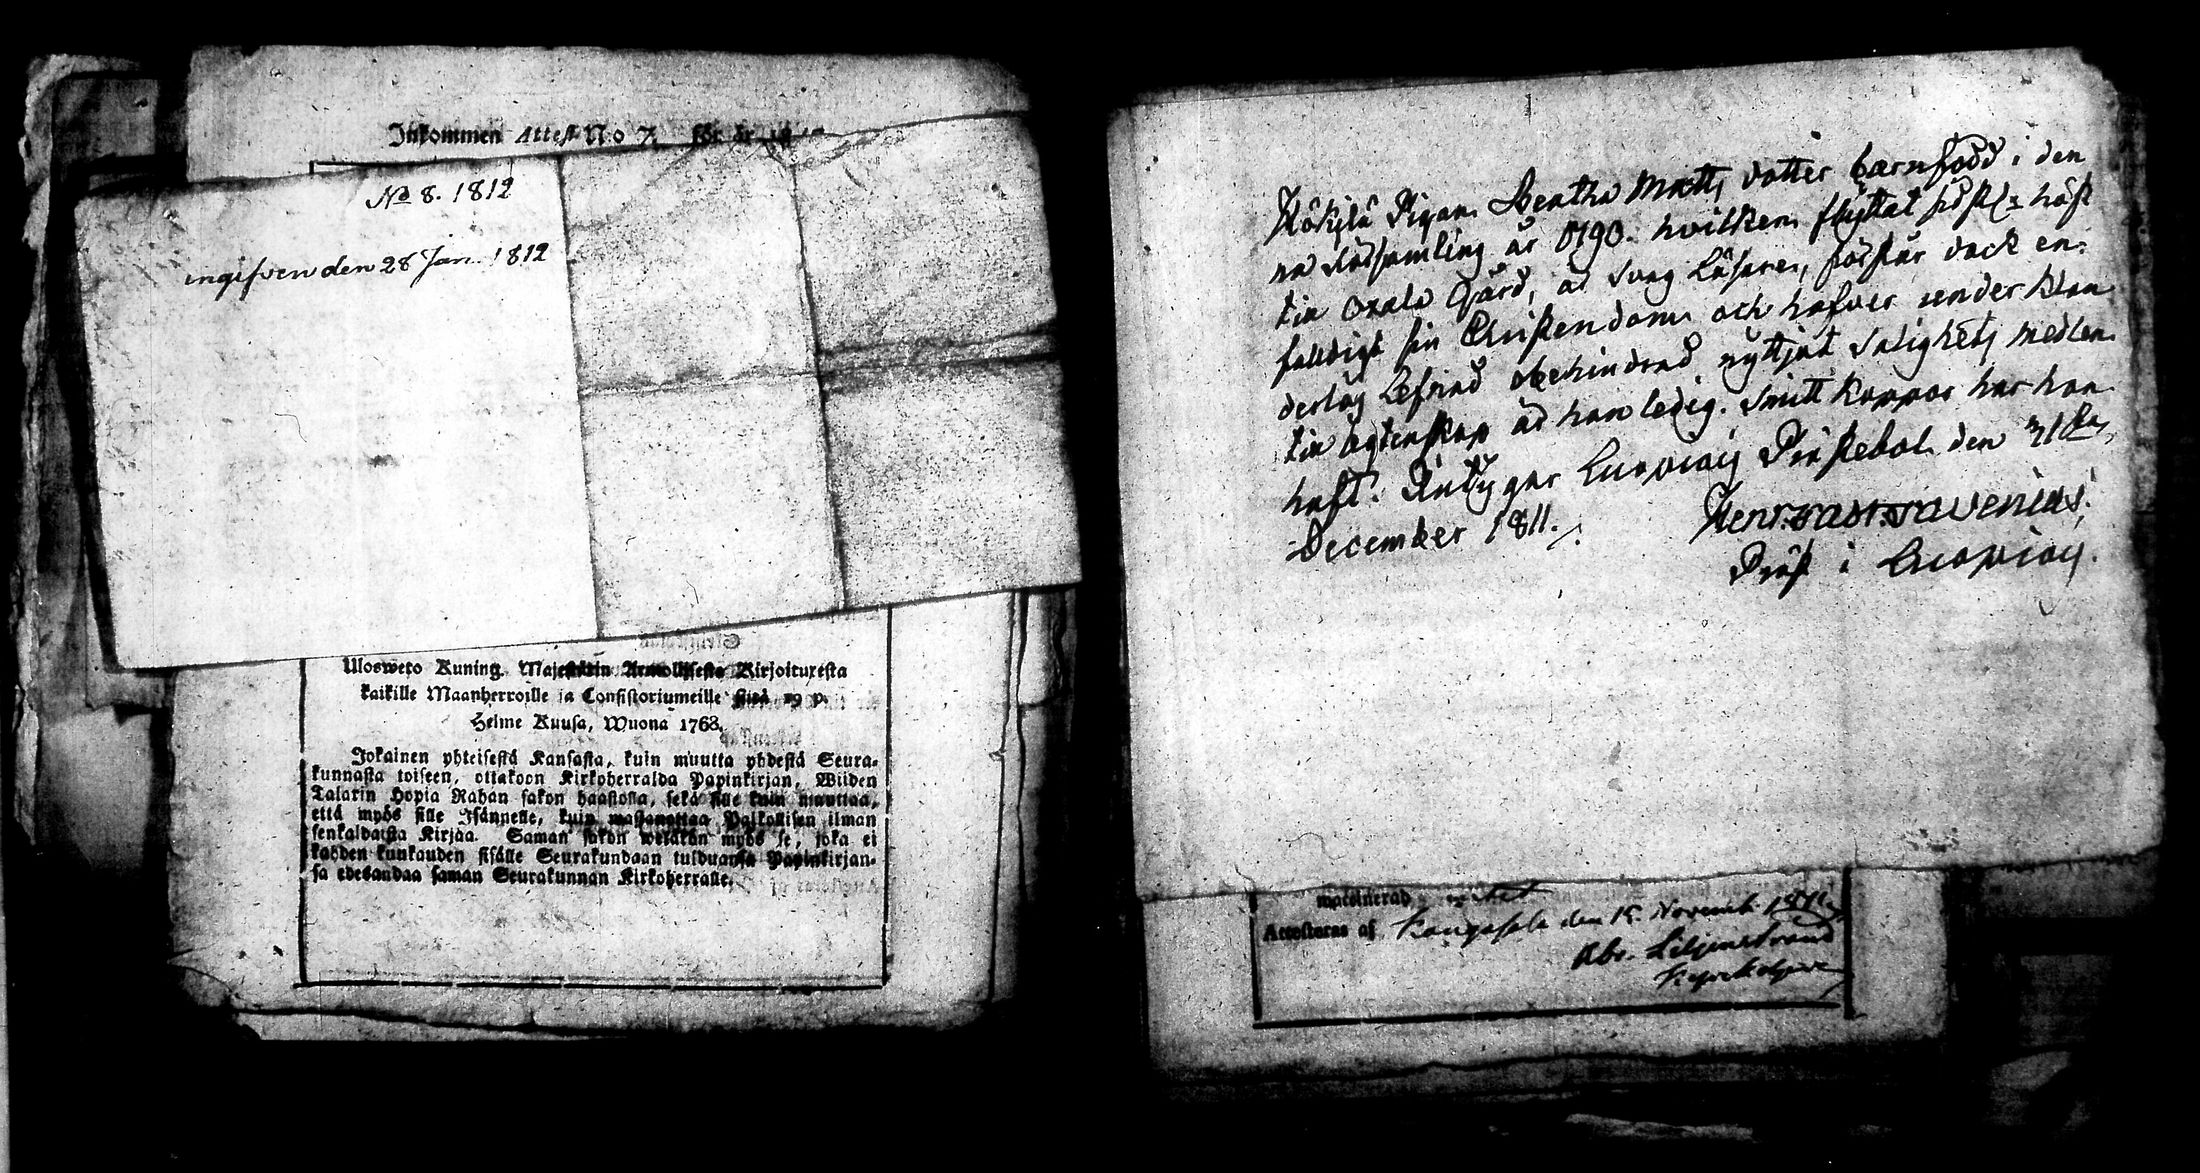 Inkommen Attest No 7. för år
No 8. 1812
ingifven den 28 Jan. 1812
Ulosweto Kuning. Majestätin Armollisesta Kirjoituxesta
kaikille Maanherroille ja Consistoriumeille siitä 29 p.
Helme Kuusa, Wuona 1763.
Jokainen yhteisestä Kansasta, kuin muutta yhdestä Seura-
kunnasta toiseen, ottakoon Kirkoherralda Papinkirjan, Wiiden
Talarin Hopia Rahan sakon haastolla, sekä sille kuin muuttaa,
että myös sille Isännelle, kuin wastanottaa Palkollisen ilman
senkaldaista Kirjaa. Saman sakon wetäkön myös se, joka ei
kahden kuukauden sisälle Seurakundaan tulduansa Papinkirjan-
sa edesandaa saman Seurakunnan Kirkoherralle.
Pigan Beatha Matts dotter barnfödd i den
na Församling år 1790. hvilken flyttat sistl. höst
til Gård, är svag Läsare, förstår dock en-
faldigt sin Christendom och hafver under klan
derlös Lefnad obehindrad nyttjat Salighets medlen
til ägtenskap är hon ledig. Smittkoppor har hon
haft. Intygar Prästebol den 31
December 1811.
Prost i
Attesteras af Kangasala den 15 Novemb. 1811
Abr. Liljenstrand